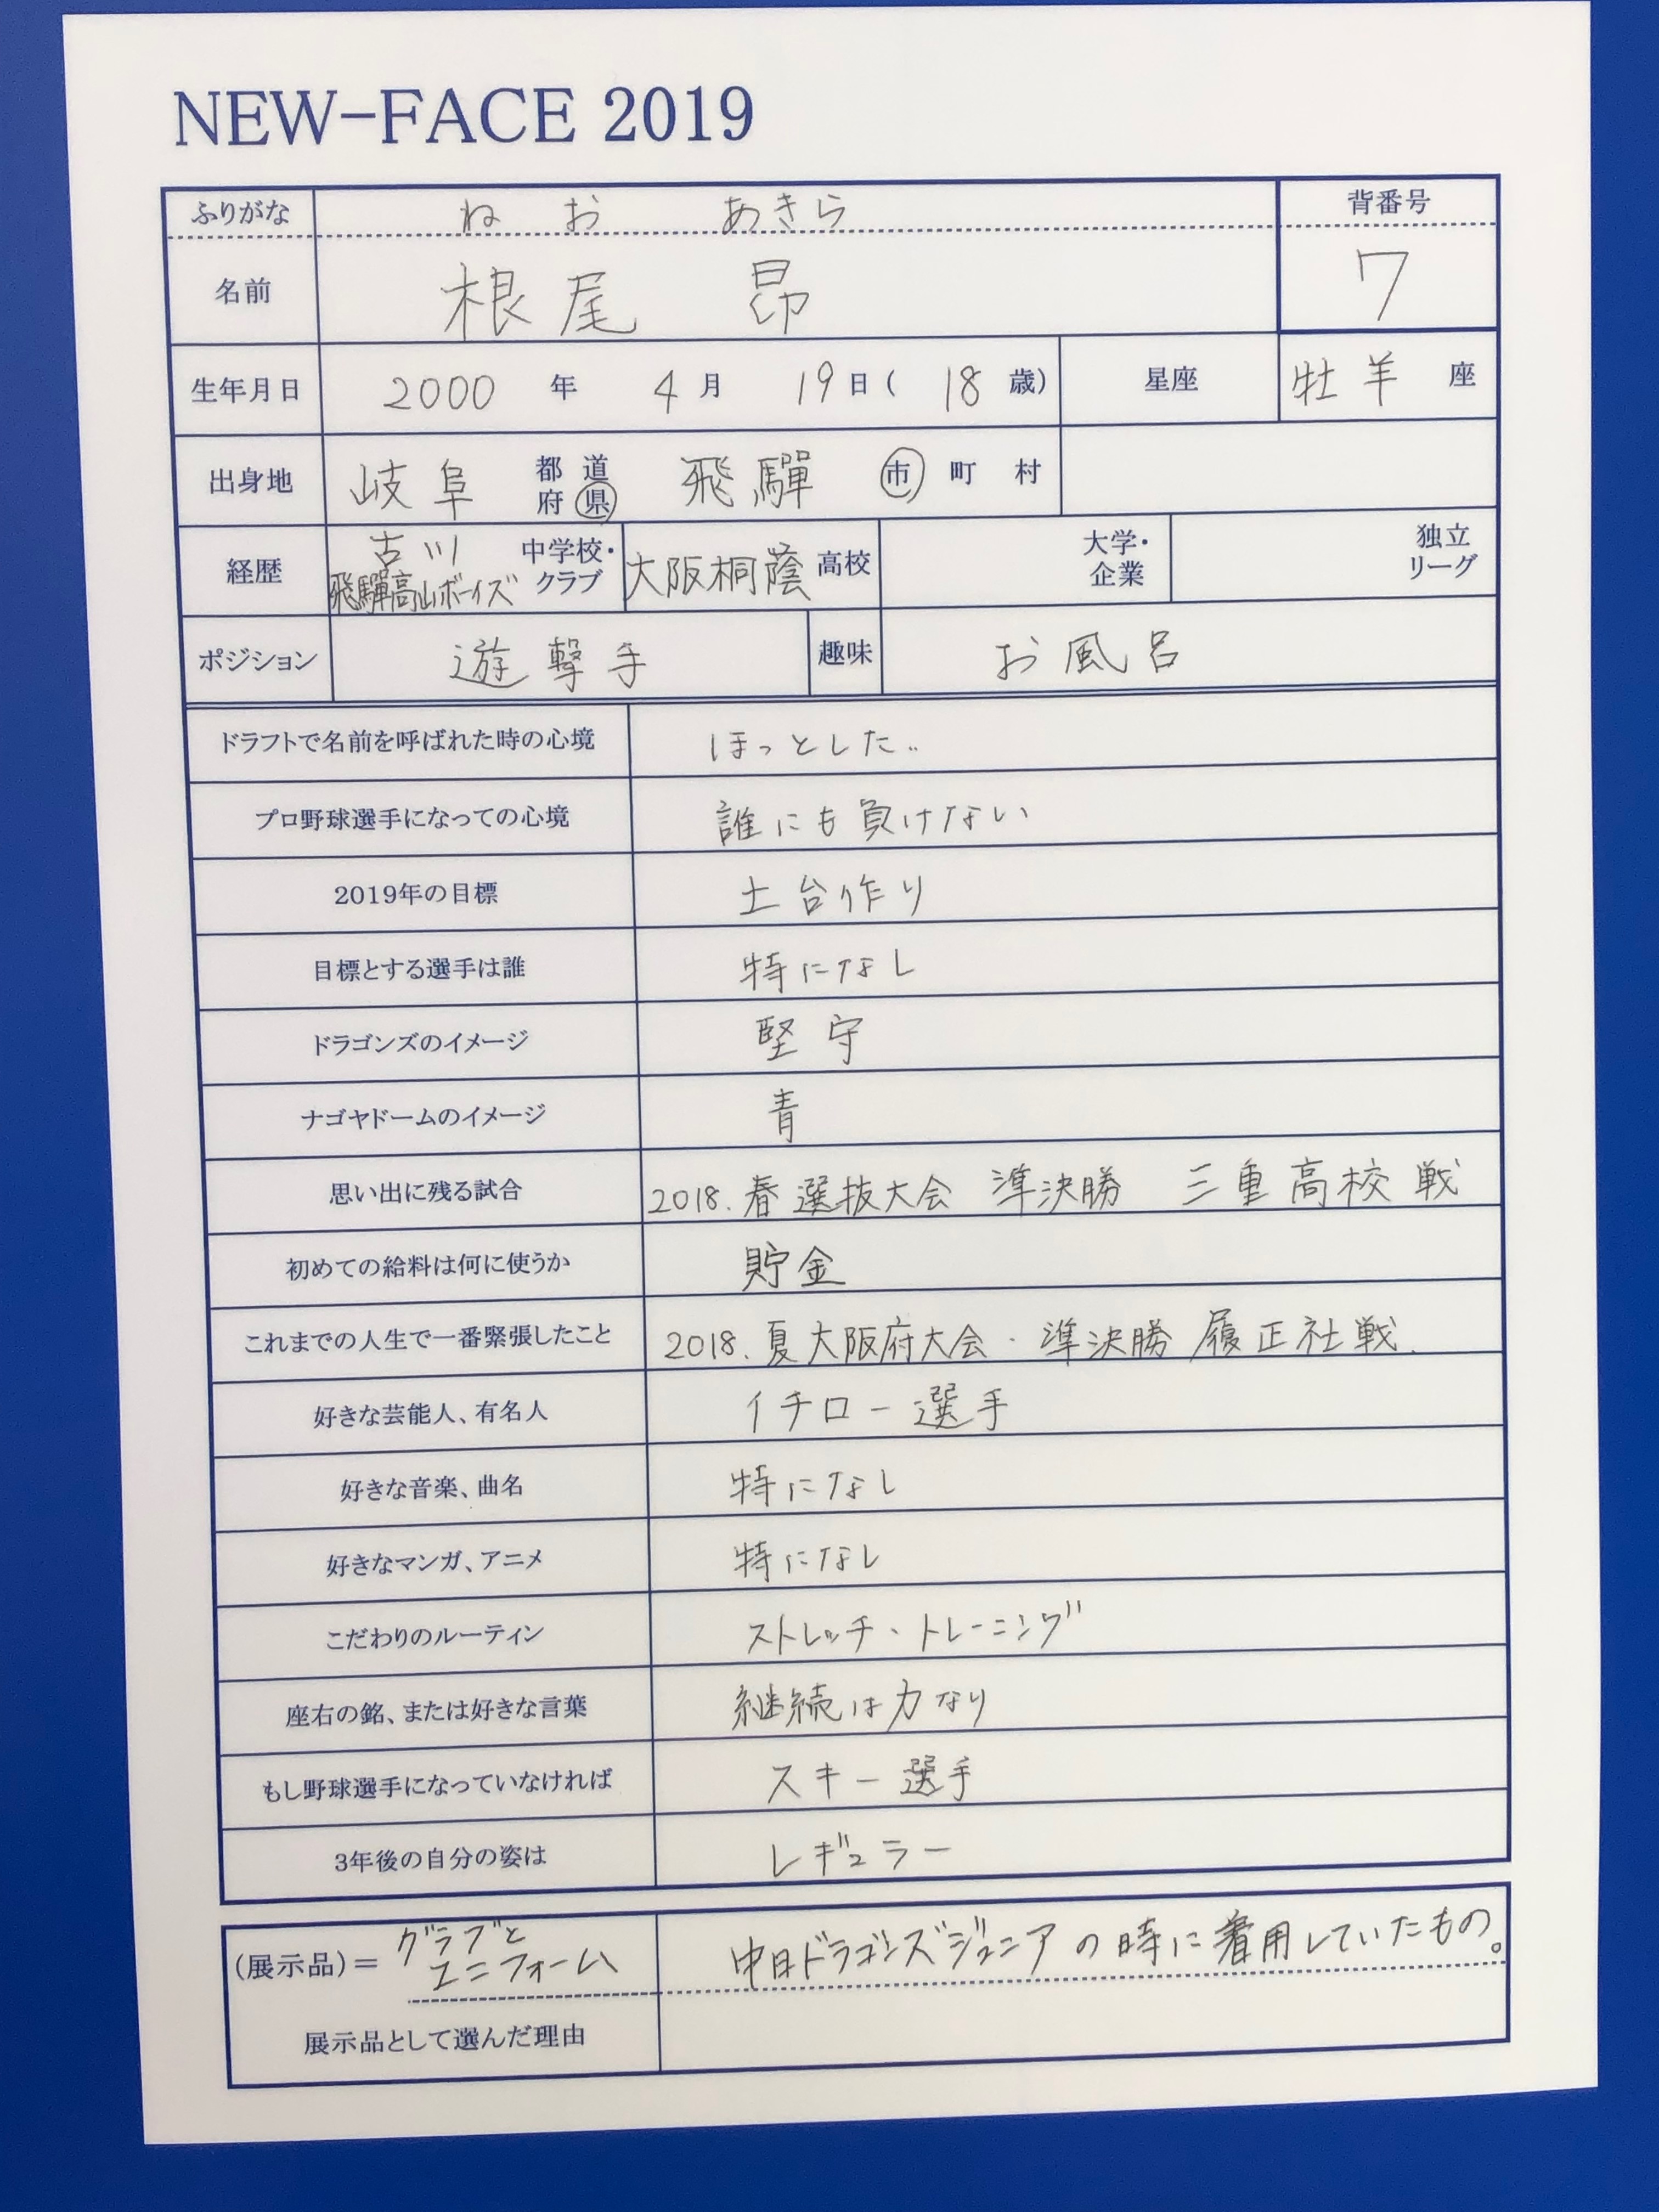 NEW-FACE 2019
ふりがな ねお あきら 背番号
名前 根尾 昂 7
生年月日 2000 年 4 月 19 日 ( 18 歳) 星座 牡羊 座
出身地 岐阜 都 道 府 県 飛驒 市 町 村
経歴 古川 飛驒高山ボーイズ 中学校・クラブ 大阪桐蔭 高校 大学・企業 独立リーグ
ポジション 遊撃手 趣味 お風呂
ドラフトで名前を呼ばれた時の心境 ほっとした..
プロ野球選手になっての心境 誰にも負けない
2019年の目標 土台作り
目標とする選手は誰 特になし
ドラゴンズのイメージ 堅守
ナゴヤドームのイメージ 青
思い出に残る試合 2018.春選抜大会 準決勝 三重高校戦
初めての給料は何に使うか 貯金
これまでの人生で一番緊張したこと 2018.夏大阪府大会・準決勝 履正社戦.
好きな芸能人、有名人 イチロー選手
好きな音楽、曲名 特になし
好きなマンガ、アニメ 特になし
こだわりのルーティン ストレッチ・トレーニング
座右の銘、または好きな言葉 継続は力なり
もし野球選手になっていなければ スキー選手
3年後の自分の姿は レギュラー
(展示品)= グラブとユニフォーム 中日ドラゴンズジュニアの時に着用していたもの。
展示品として選んだ理由